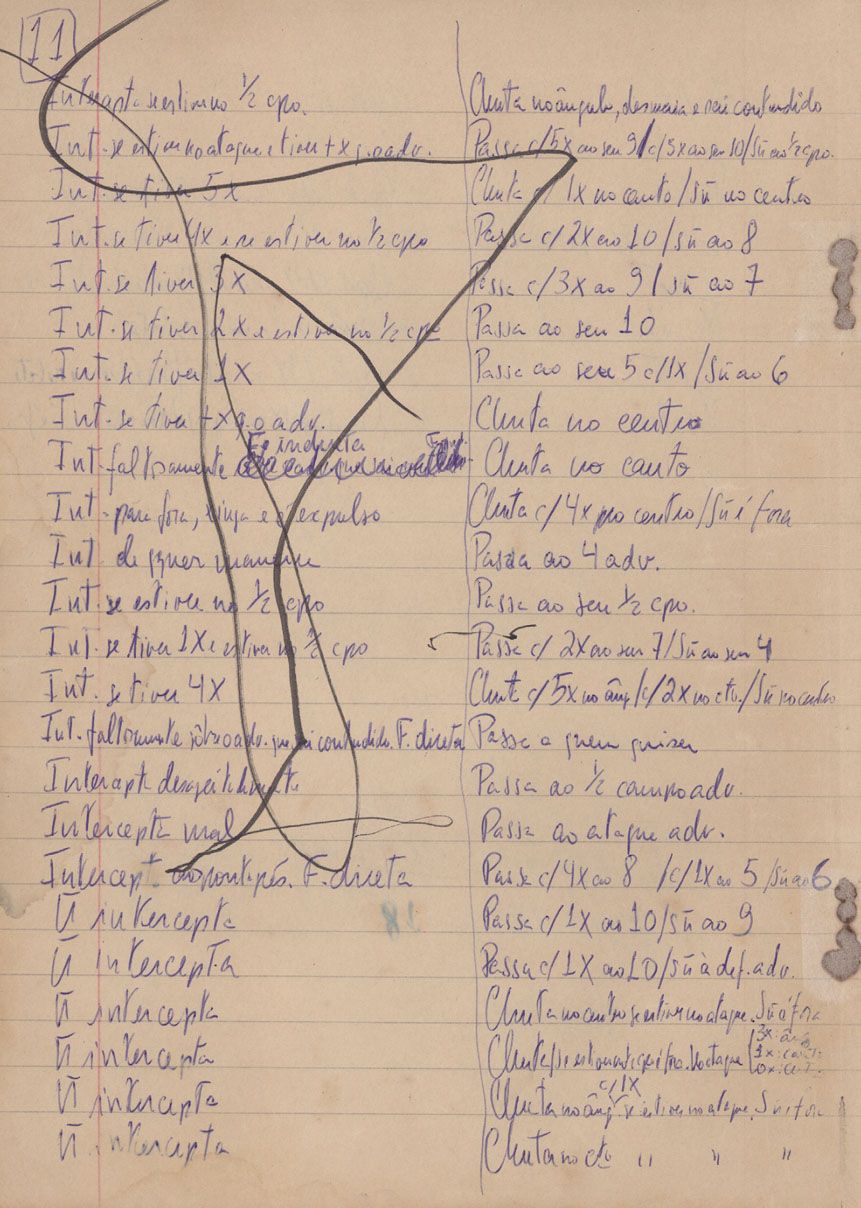 11
Intercepta se estiver no 1/2 cpo.
Int. se estiver no ataque e tiver +x q. o adv.
Int. se tiver 5x
Int. se tiver 4x e se estiver no 1/2 cpo
Int. se tiver 3x
Int. se tiver 2x e estiver no 1/2 cpo
Int. se tiver 1x
Int. se tiver +x q. o adv.
Int. faltosamente F. indireta
Int. para fora, xinga e é expulso
Int. de qquer maneira
Int. se estiver no 1/2 cpo
Int. se tiver 1x e estiver no 1/2 cpo
Int. se tiver 4x
Int. faltosamente sôbre o adv. que sai contundido. F. direta
Intercepta desajeitadamente
Intercepta mal
Intercept. aos pontapés. F. direta
Ñ intercepta
Ñ intercepta
Ñ intercepta
Ñ intercepta
Ñ intercepta
Ñ intercepta
Chuta no ângulo, desmaia e sai contundido
Passa c/5x ao seu 9/c/3x ao seu 10/Sñ ao 1/2 cpo.
Chuta c/ 1x no canto/Sñ no centro
Passa c/2x ao 10/Sñ ao 8
Passa c/3x ao 9/sñ ao 7
Passa ao seu 10
Passa ao seu 5 c/1x/Sñ ao 6
Chuta no centro
Chuta no canto
Chuta c/4x no centro/Sñ é fora
Passa ao 4 adv.
Passa ao seu 1/2 cpo.
Passa c/ 2x ao seu 7/Sñ ao seu 4
Chuta c/5x no âng/c/2x no cto./Sñ no centro
Passa a quem quiser
Passa ao 1/2 campo adv.
Passa ao ataque adv.
Passa c/4x ao 8 /c/1x ao 5/Sñ ao 6
Passa c/1x ao 10/Sñ ao 9
Passa c/1x ao 10/Sñ à def. adv.
Chuta no centro se estiver no ataque. Sñ é fora
Chuta fora. No ataque 3x: âng
1x: canto
0x: cent.
c/1x
Chuta no âng se estiver no ataque. Sñ é fora
Chuta no cto " " "